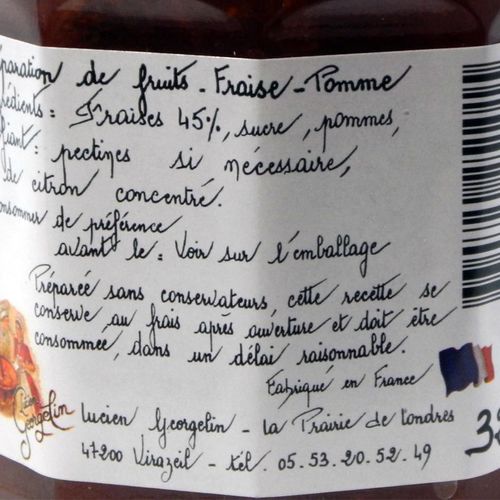 paration de fruits - Fraise - Pomme
édients : Fraises 45%, sucre, pommes,
fiant : pectines si nécessaire,
de citron concentré.
onsommer de préférence
avant le : Voir sur l'emballage
Préparée sans conservateurs, cette recette se
conserve au frais après ouverture et doit être
consommée, dans un délai raisonnable.
Fabriqué en France
Lucien Georgelin - La Prairie de Londres
47200 Virazeil - tél. 05.53.20.52.49
Georgelin
3